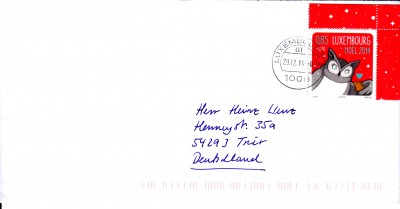 0,85 LUXEMBOURG
NOËL 2014
LUXEMBOURG
01
29.12.14
1000
Herr Heinz
35a
54293 Trier
Deutschland